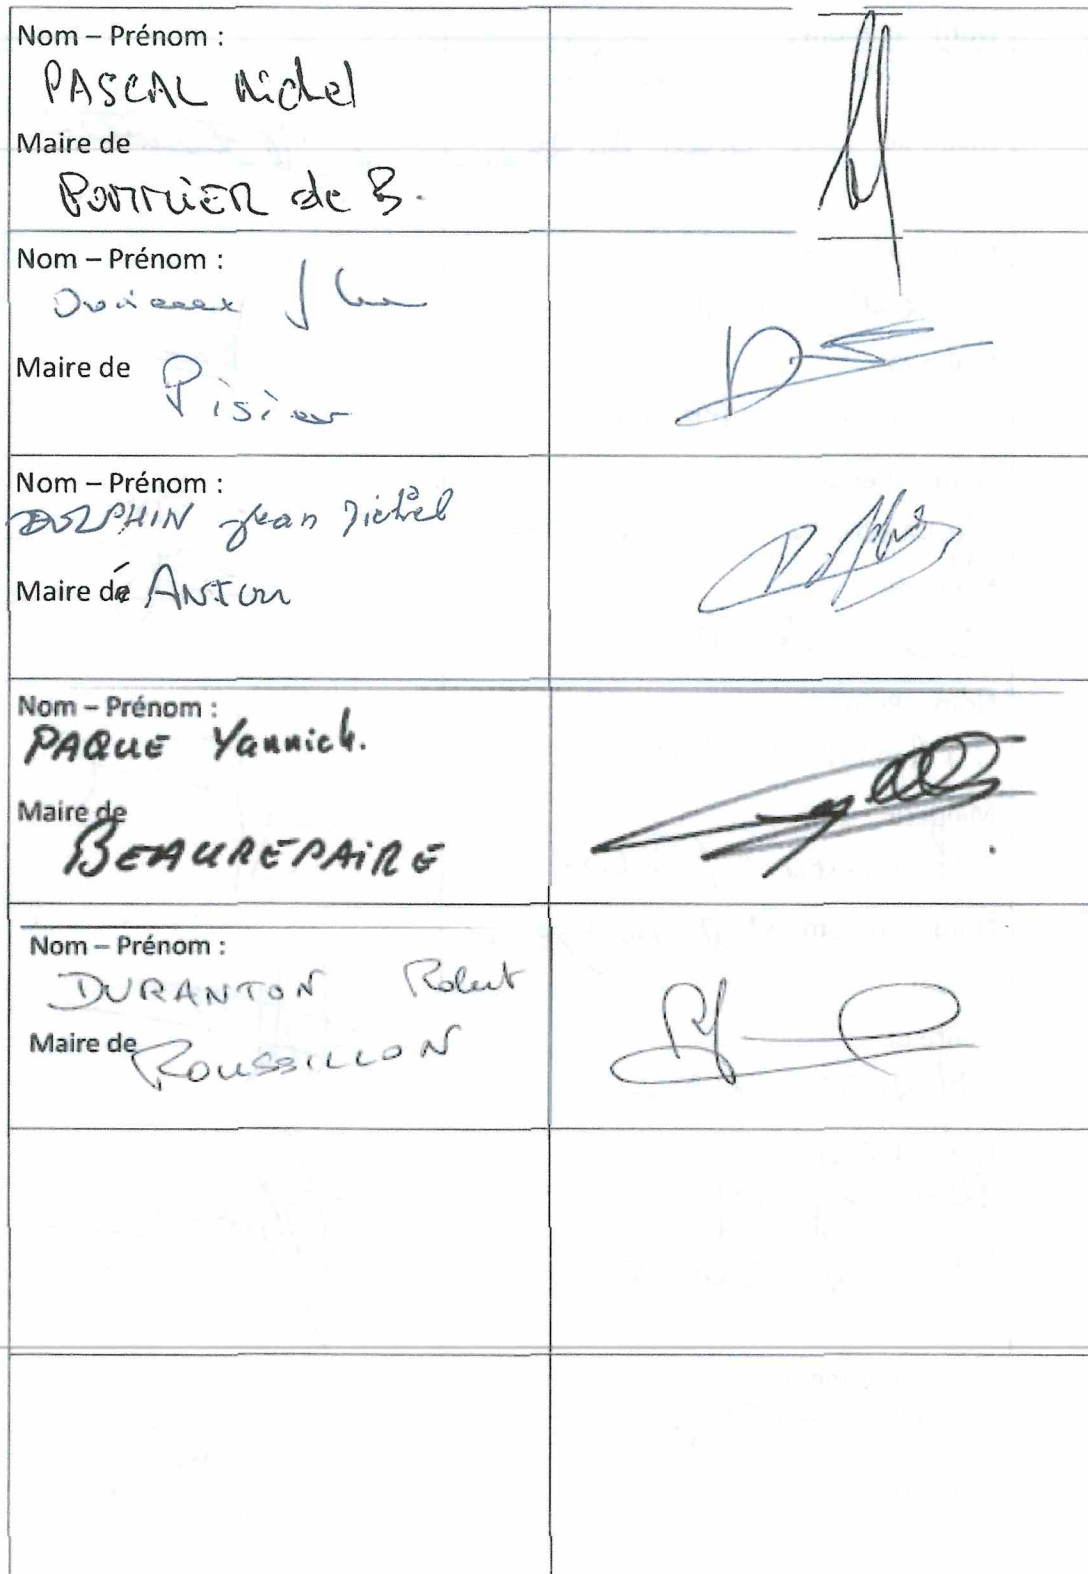 Nom – Prénom :
PASCAL Michel
Maire de
POMMIER de B.
Nom – Prénom :
Maire de Pisieu
Nom – Prénom :
DOLPHIN Jean Michel
Maire de
Nom – Prénom :
PAQUE Yannick.
Maire de
BEAUREPAIRE
Nom – Prénom :
DURANTON Robert
Maire de
ROUSSILLON